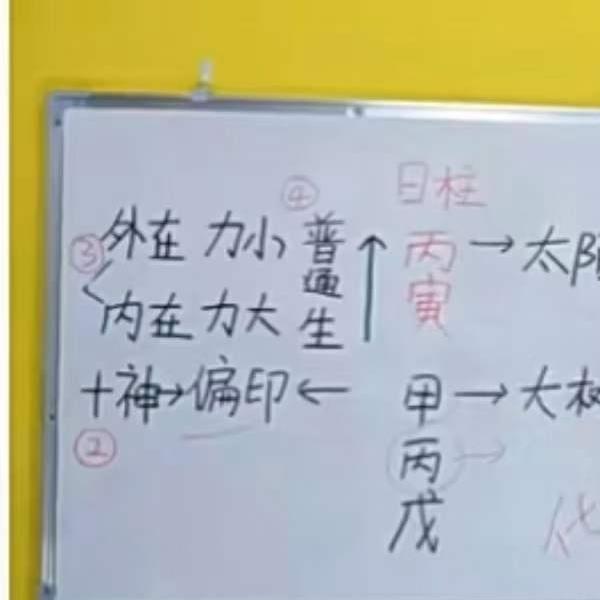 日柱
④
③ 外在 力小
内在 力大
普通生
丙寅 → 太阳
十神→偏印 ← 甲 → 大树
②
丙 →
戊
化